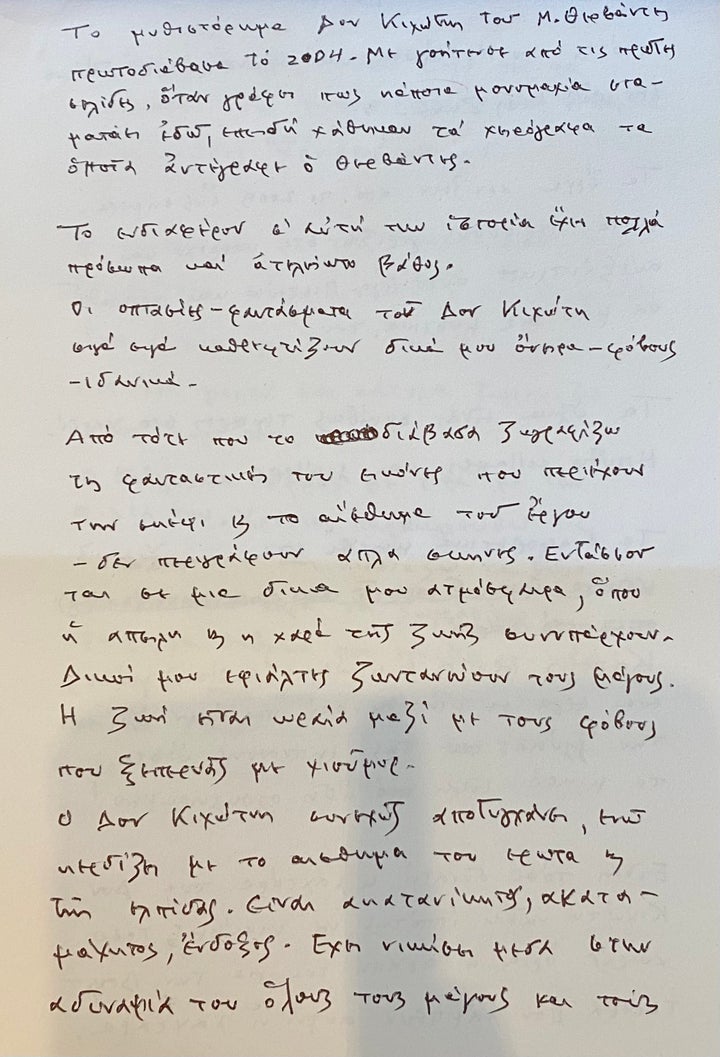 Το μυθιστόρημα Δον Κιχώτη του Μ. Θερβάντες
πρωτοδιάβασα τό 2004. Με γοήτευσε από τις πρώτες
σελίδες, ὅταν γράφει πως κάποια μονομαχία στα-
ματάει ἐδώ, επειδή χάθηκαν τα χειρόγραφα τα
ὁποῖα ἀντέγραφε ὁ Θερβάντες.
Το ενδιαφέρον σ' αὐτή την ἱστορία ἔχει πολλά
πρόσωπα καί ἀτελείωτο βάθος.
Οι οπτασίες-φαντάσματα τοῦ Δον Κιχώτη
σιγά σιγά καθρεφτίζουν δικά μου όνειρα-φόβους
-ιδανικά.
Από τότε που το διάβασα ζωγραφίζω
τις φανταστικές του εικόνες που περιέχουν
την σκέψι κ το αίσθημα τοῦ ἔργου
- δεν περιγράφουν απλά σκηνές. Εντάσσον
ται σε μια δικια μου ατμόσφαιρα, ὅπου
ἡ απειλη κ η χαρά τῆς ζωῆς συνυπάρχουν.
Δικοί μου εφιάλτες ζωντανεύουν τους μάγους.
Η ζωή είναι ωραία μαζί με τους φόβους
που ξεπερνᾶς με χιοῦμορ.
Ο Δον Κιχώτης συνεχῶς αποτυγχάνει, ενῶ
κερδίζει με το αισθημα του ερωτα κ
τῆς ελπίδας. Είναι ακατανίκητος, ακατα-
μάχητος, ἔνδοξος. Εχει νικήσει μεσα στην
αδυναμία του ὅλους τους μάγους και τοὺς